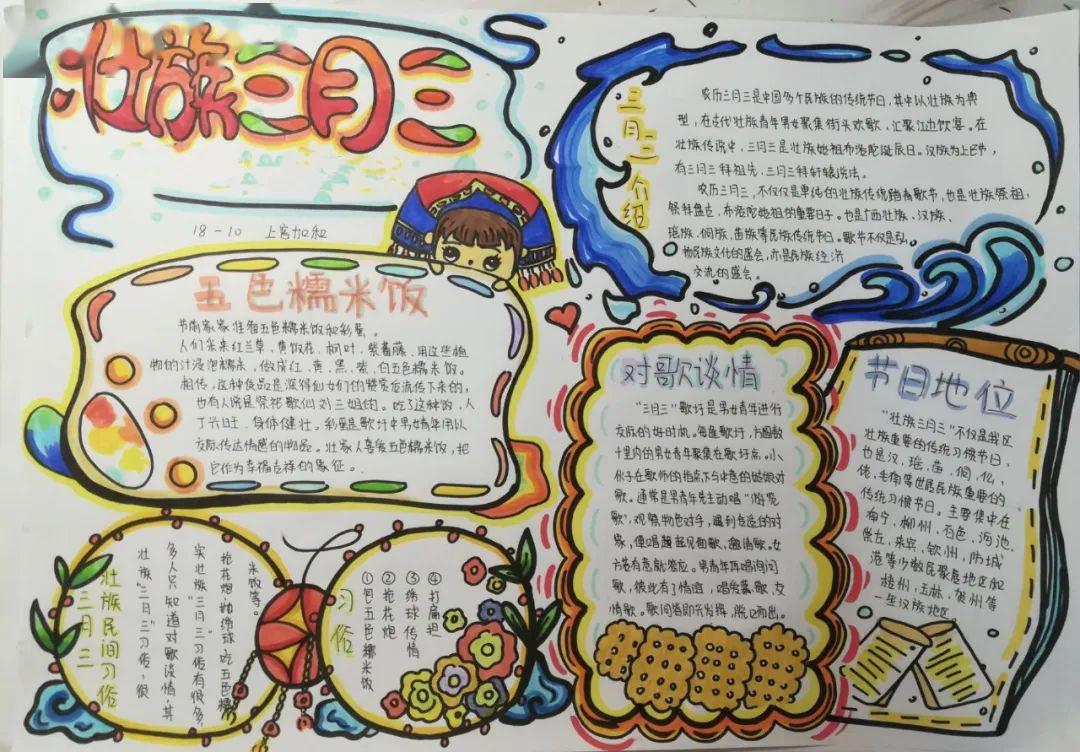 壮族三月三
18-10 上官加和
三月三介绍
农历三月三是中国多个民族的传统节日,其中以壮族为典
型,在古代壮族青年男女聚集街头欢歌,汇聚江边饮宴。在
壮族传说中,三月三是壮族始祖布洛陀诞辰日。汉族为上巳节,
有三月三拜祖先,三月三拜轩辕说法。
农历三月三,不仅仅是单纯的壮族传统踏青歌节,也是壮族祭祖,
祭拜盘古,布洛陀始祖的重要日子。也是广西壮族、汉族、
瑶族、侗族、苗族等民族传统节日。歌节不仅是弘
扬民族文化的盛会,亦是民族经济
交流的盛会。
五色糯米饭
节前家家准备五色糯米饭和彩蛋。
人们采来红兰草,黄饭花,枫叶,紫蕃藤,用这些植
物的汁浸泡糯米,做成红,黄,黑,紫,白五色糯米饭。
相传,这种食品是深得仙女们的赞赏后流传下来的,
也有人说是祭祀歌仙刘三姐的。吃了这种饭,人
丁兴旺,身体健壮。彩蛋是歌圩中男女青年用以
交际传达情感的物品。壮家人喜爱五色糯米饭,把
它作为幸福吉祥的象征。
对歌谈情
"三月三"歌圩是男女青年进行
交际的好时机。每逢歌圩,方圆数
十里内的男女青年聚集在歌圩点。小
伙子在歌师的指点下与中意的姑娘对
歌。通常是男青年先主动唱"游览
歌",观察物色对手,遇到合适的对
象,便唱起见面歌,邀请歌。女
方若有意就答应。男青年再唱询问
歌,彼此有了情谊,唱爱慕歌,交
情歌。歌词皆即兴发挥,脱口而出。
节日地位
"壮族三月三"不仅是我区
壮族重要的传统习俗节日,
也是汉,瑶,苗,侗,仫
佬,毛南等世居民族重要的
传统习俗节日。主要集中在
南宁,柳州,百色,河池,
崇左,来宾,钦州,防城
港等少数民族聚居地区和
梧州,玉林,贺州等
一些汉族地区。
壮族三月三
壮族民间习俗
壮族"三月三"习俗,很
多人只知道对歌谈情,其
实壮族"三月三"习俗有很多,
抢花炮,抛绣球,吃五色糯
米饭等。
习俗
①包五色糯米饭
②抢花炮
③绣球传情
④打扁担